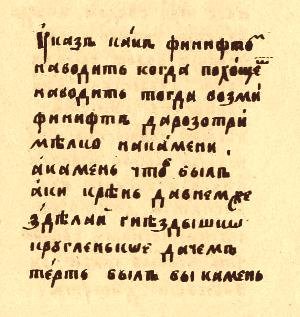 Указъ какъ финифтъ
наводить когда похощешъ
наводить тогда возми
финифтъ даразотри
мѣлко накамени,
акамень чтобъ былъ
аки крѣнь давнемже
здѣлай гнѣздышко
кругленкое дачемъ
тереть былъ бы камень